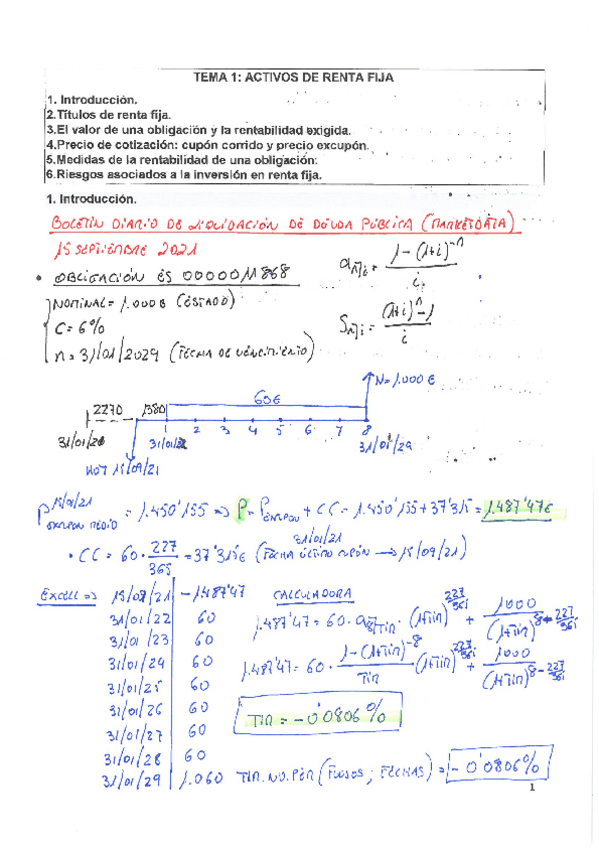 TEMA 1: ACTIVOS DE RENTA FIJA
1. Introducción.
2.Títulos de renta fija.
3.El valor de una obligación y la rentabilidad exigida.
4.Precio de cotización: cupón corrido y precio excupón.
5.Medidas de la rentabilidad de una obligación:
6.Riesgos asociados a la inversión en renta fija.
1. Introducción.
BOLETÍN DIARIO DE LIQUIDACIÓN DE DEUDA PÚBLICA (MARKETDATA)
15 SEPTIEMBRE 2021
a n̅|i = 1-(1+i)^-n / i
• OBLIGACIÓN ES 0000011868
NOMINAL = 1.000€ (ESTADO)
S n̅|i = (1+i)^n - 1 / i
C = 6%
n = 31/01/2029 (FECHA DE VENCIMIENTO)
N = 1.000€
60€
227D 138D 1 2 3 4 5 6 7 8
31/01/2 31/01/2 31/01/29
HOY 15/09/21
P 15/09/21 EXCUPON MEDIO = 1.450'155 => P = P EXCUPON + CC = 1.450'155 + 37'315 = 1.487'47€
• CC = 60 · 227/365 = 37'315€ (FECHA ÚLTIMO CUPÓN 31/01/21 → 15/09/21)
EXCELL => 15/09/21 - 1.487'47 CALCULADORA
31/01/22 60
1.487'47 = 60 · a 8̅|TIR · (1+TIR)^227/365 + 1000 / (1+TIR)^8-227/365
31/01/23 60
31/01/24 60
1.487'47 = 60 · 1-(1+TIR)^-8 / TIR · (1+TIR)^227/365 + 1000 / (1+TIR)^8-227/365
31/01/25 60
31/01/26 60
TIR = - 0'0806%
31/01/27 60
31/01/28 60
31/01/29 1.060 TIR.NO.PER (FLUJOS; FECHAS) = - 0'0806%
1